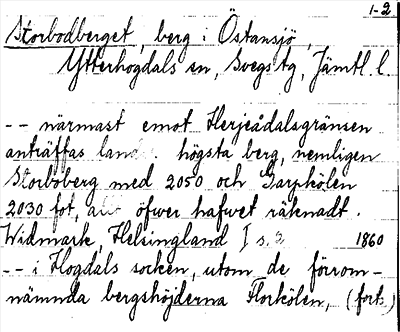 1-2
Storbodberget, berg i Östansjö,
Ytterhogdals sn, Svegs tg, Jämtl. l.
-- närmast emot Herjeådalsgränsen
anträffas högsta berg, nemligen
Storboberg med 2050 och Garpkölen
2030 fot, allt öfwer hafwet räknadt.
Widmark, Helsingland I s. 1860
-- i Hogdals socken, utom de förrom-
nämnda bergshöjderna Florkölen, (forts.)